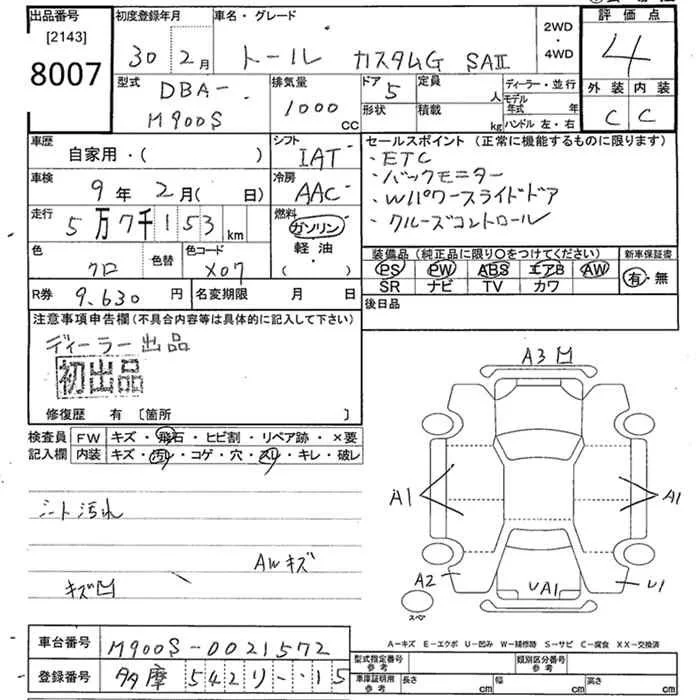 出品番号 初度登録年月 車名・グレード 2WD・4WD 評価点
[2143]
8007
30年 2月 トール カスタムG SAⅡ 4
型式 DBA-M900S 排気量 1000CC ドア 5 形状 定員 人 積載 kg ディーラー・並行 モデル年式 年 ハンドル 左・右 外装 内装
C C
車歴 自家用・( ) シフト IAT
車検 9年 2月( 日) 冷房 AAC
走行 5万7千153km 燃料 ガソリン 軽油 ・( )
色 クロ 色替 色コード X07
R券 9,630円 名変期限 月 日
セールスポイント(正常に機能するものに限ります)
・ETC
・バックモニター
・Wパワースライドドア
・クルーズコントロール
装備品(純正品に限り〇をつけてください) 新車保証書
PS PW ABS エアB AW 有・無
SR ナビ TV カワ
後日品
注意事項申告欄(不具合内容等は具体的に記入して下さい)
ディーラー出品
初出品
修復歴 有 〔箇所 〕
検査員 FW キズ・飛石・ヒビ割・リペア跡・×要
記入欄 内装 キズ・汚レ・コゲ・穴・スレ・キレ・破レ
シート汚れ
AWキズ
キズ凹
A3凹
A1 A1
A2 UA1 U1
スペア
A-キズ E-エクボ U-凹み W-補修跡 S-サビ C-腐食 XX-交換済
車台番号 M900S-0021572
登録番号 多摩 542 り ・・15
型式指定番号 参考 類別区分番号 参考
車庫証明用 参考 長さ cm 幅 cm 高さ cm